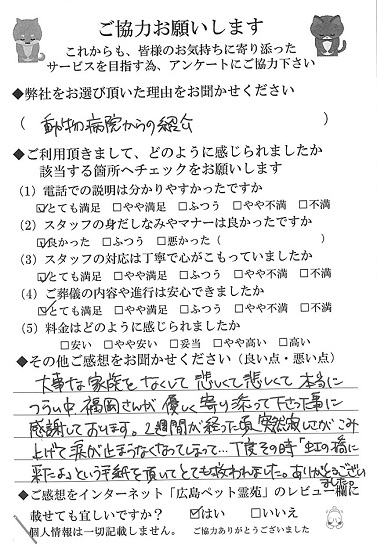 ご協力お願いします
これからも、皆様のお気持ちに寄り添った
サービスを目指す為、アンケートにご協力下さい
◆弊社をお選び頂いた理由をお聞かせください
( 動物病院からの紹介 )
◆ご利用頂きまして、どのように感じられましたか
該当する箇所へチェックをお願いします
(1) 電話での説明は分かりやすかったですか
☑とても満足 □やや満足 □ふつう □やや不満 □不満
(2) スタッフの身だしなみやマナーは良かったですか
☑良かった □ふつう □悪かった ( )
(3) スタッフの対応は丁寧で心がこもっていましたか
☑とても満足 □やや満足 □ふつう □やや不満 □不満
(4) ご葬儀の内容や進行は安心できましたか
☑とても満足 □やや満足 □ふつう □やや不満 □不満
(5) 料金はどのように感じられましたか
□安い □やや安い □妥当 □やや高い □高い
◆その他ご感想をお聞かせください (良い点・悪い点)
大事な家族を亡くして 悲しくて悲しくて 本当に
つらい中 福岡さんが 優しく寄り添って下さった事に
感謝しております。2週間が経った頃 突然寂しさがこみ
上げて涙が止まらなくなってしまって…丁度その時「虹の橋に
来たよ」という手紙を頂いてとても救われました。ありがとうござい
ました。
◆ご感想をインターネット「広島ペット霊苑」のレビュー欄に
載せても宜しいですか? ☑はい □いいえ
個人情報は一切記載しません。 ご協力ありがとうございました